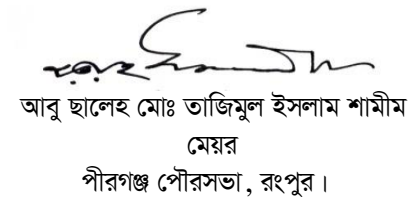 আবু ছালেহ মোঃ তাজিমুল ইসলাম শামীম
মেয়র
পীরগঞ্জ পৌরসভা, রংপুর।